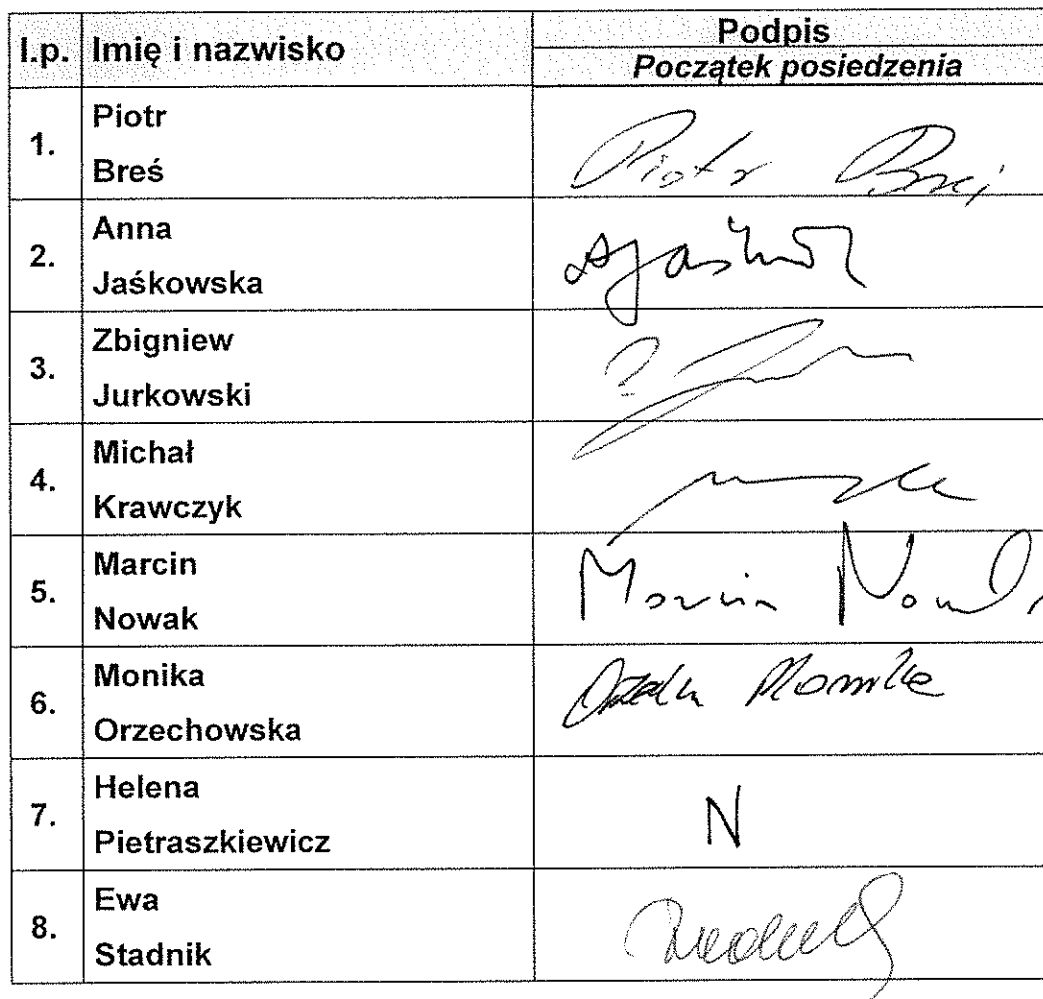 l.p. Imię i nazwisko Podpis
Początek posiedzenia
1. Piotr
Breś
Piotr Breś
2. Anna
Jaśkowska
AJaśkow
3. Zbigniew
Jurkowski
4. Michał
Krawczyk
5. Marcin
Nowak
Marcin Nowak
6. Monika
Orzechowska
Monika
7. Helena
Pietraszkiewicz
N
8. Ewa
Stadnik